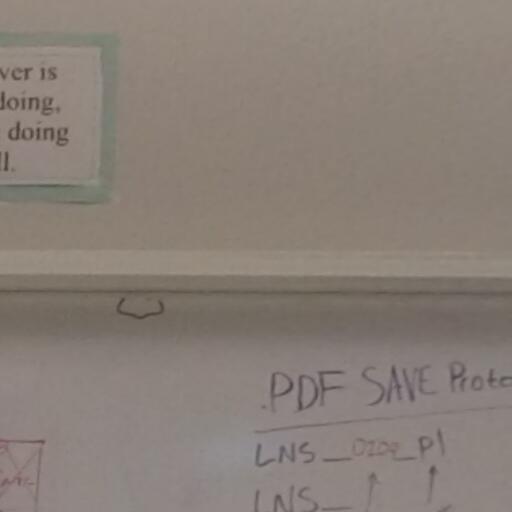 ver is
doing,
doing
ll.
.PDF SAVE Proto
LNS_0202_P1
LNS_